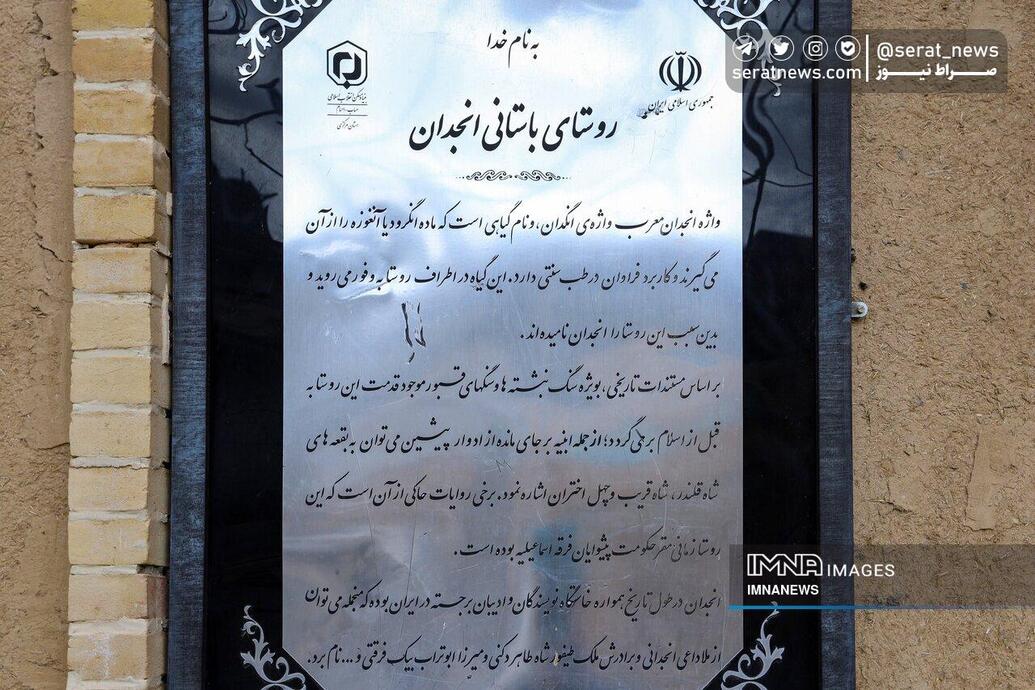 @serat_news
seratnews.com | صراط نیوز
به نام خدا
جمهوری اسلامی ایران
بنیاد مسکن انقلاب اسلامی
استان مرکزی
روستای باستانی انجدان
واژه انجدان معرب واژه‌ی انگدان، و نام گیاهی است که ماده انگرود یا آنغوزه را از آن
می گیرند و کاربرد فراوان در طب سنتی دارد. این گیاه در اطراف روستا به وفور می روید و
بدین سبب این روستا را انجدان نامیده اند.
بر اساس مستندات تاریخی، بویژه سنگ نبشته ها و سنگهای قبور موجود قدمت این روستا به
قبل از اسلام بر می گردد؛ از جمله ابنیه بر جای مانده از ادوار پیشین می توان به بقعه های
شاه قلندر، شاه قریب و چهل اختران اشاره نمود. برخی روایات حاکی از آن است که این
روستا زمانی مقر حکومت پیشوایان فرقه اسماعیلیه بوده است.
انجدان در طول تاریخ همواره خاستگاه نویسندگان و ادیبان برجسته در ایران بوده که منجمله می توان
از ملاداعی انجدانی و برادرش ملک طیفور، شاه طاهر دکنی و میرزا ابوتراب بیک فرقتی و ... نام برد.
IMNA IMAGES
IMNANEWS